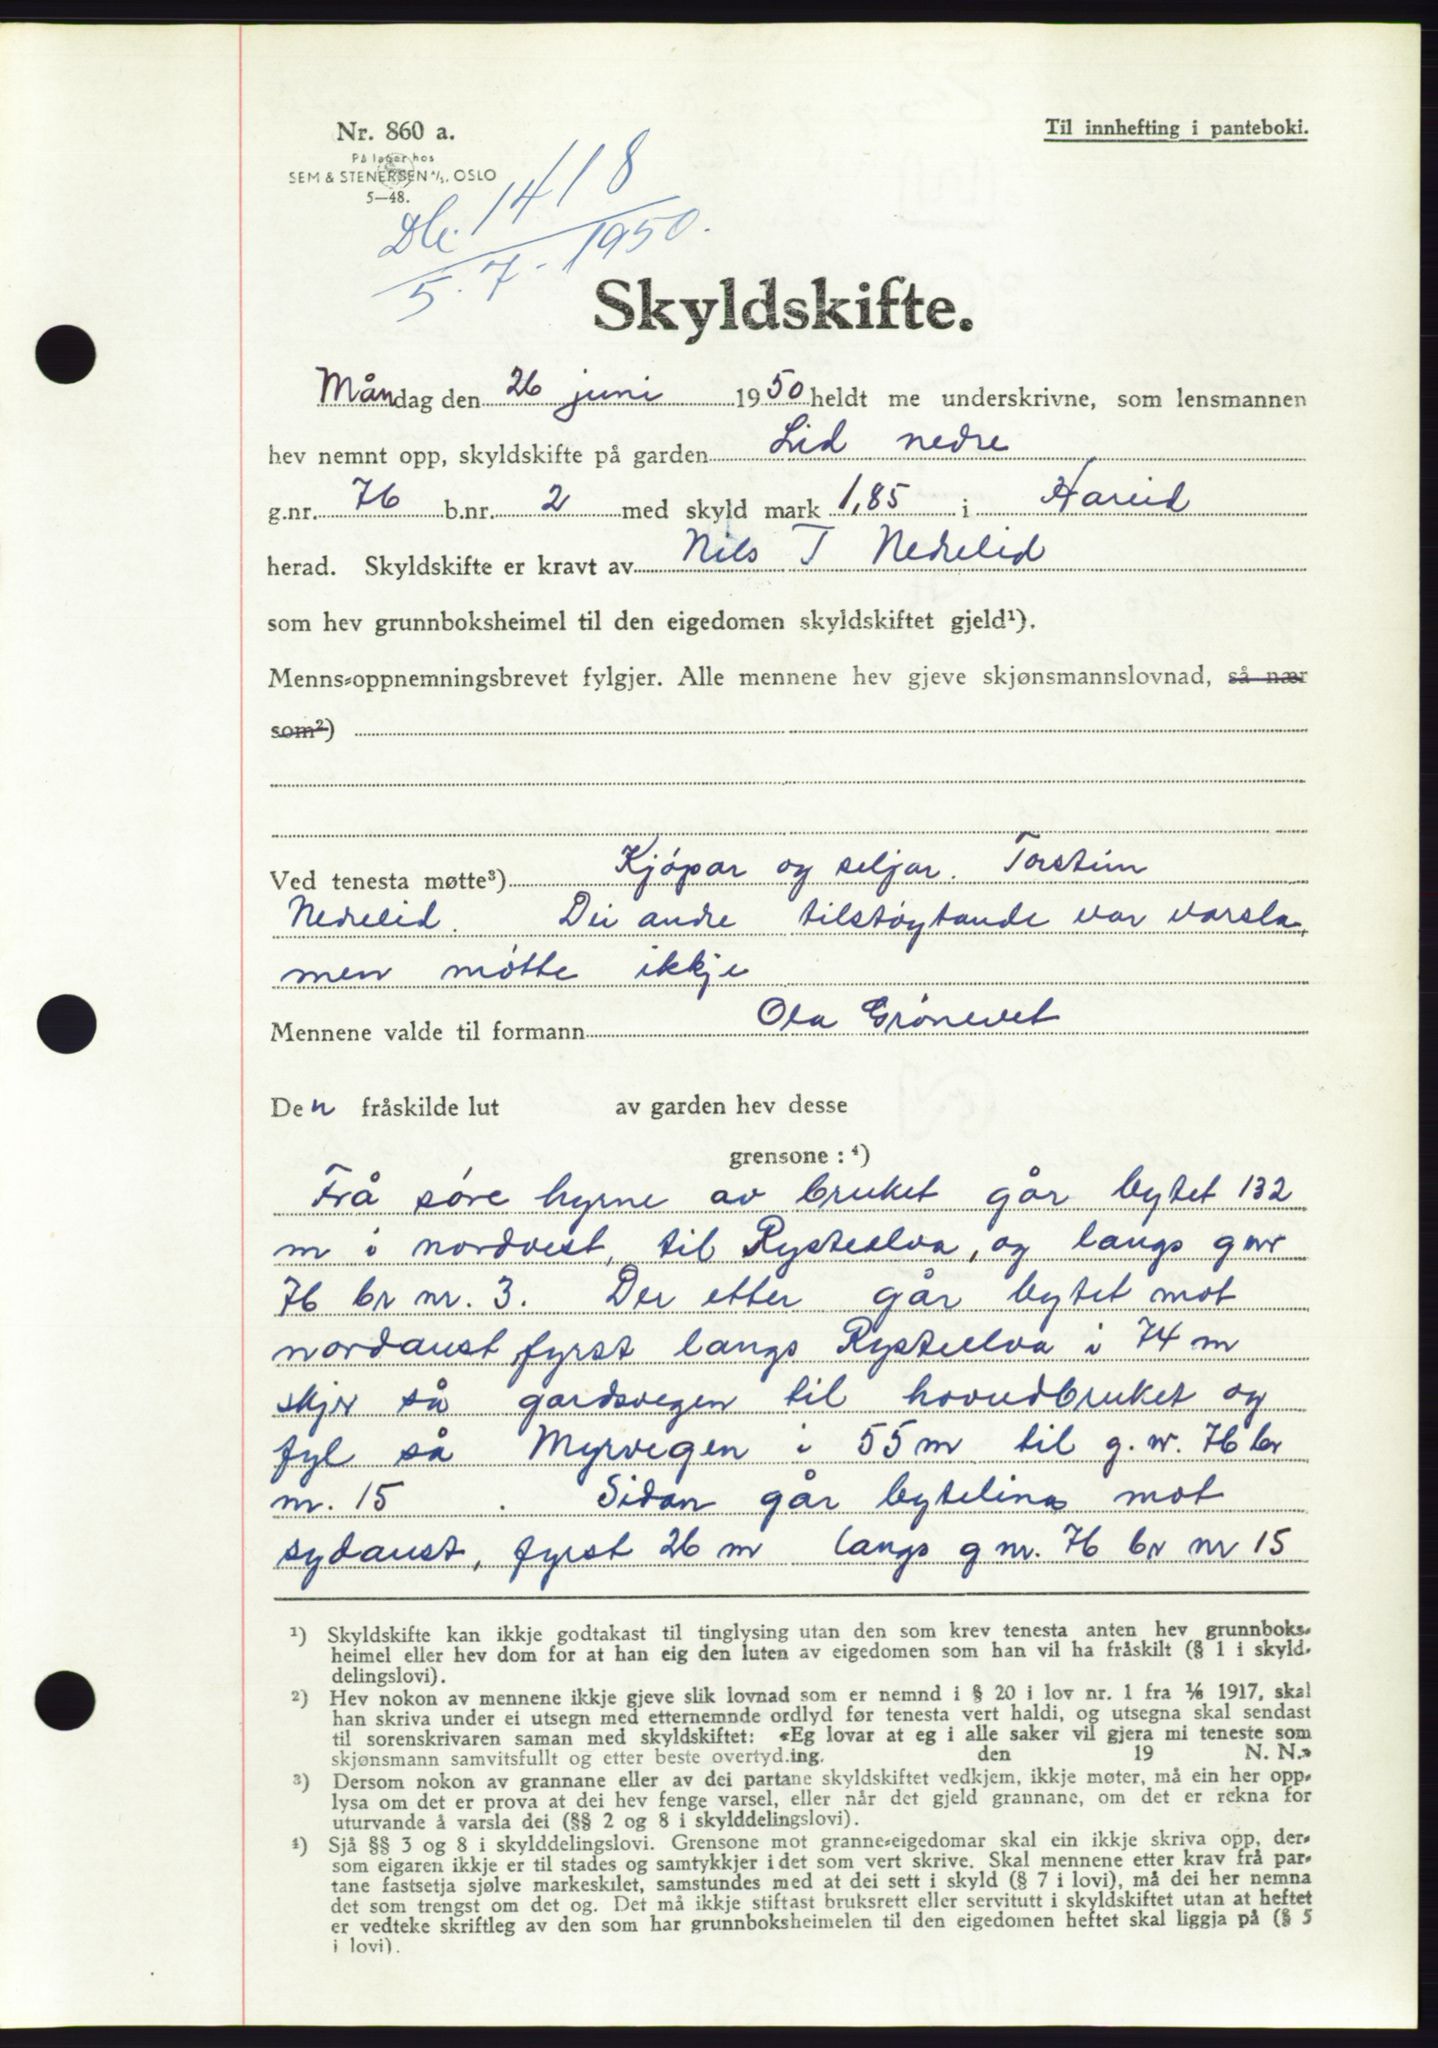 Nr. 860 a.
På lager hos
SEM & STENERSEN A/S, OSLO
5—48.
Til innhefting i panteboki.
1418
5. 7. 1950.
Skyldskifte.
Måndag den 26 juni 1950 heldt me underskrivne, som lensmannen
hev nemnt opp, skyldskifte på garden Lid nedre
g.nr. 76 b.nr. 2 med skyld mark 1,85 i Hareid
herad. Skyldskifte er kravt av Nils T Nedrelid
som hev grunnboksheimel til den eigedomen skyldskiftet gjeld¹).
Menns-oppnemningsbrevet fylgjer. Alle mennene hev gjeve skjønsmannslovnad, så nær
som²)
Ved tenesta møtte³) Kjøpar og seljar. Torstein
Nedrelid. Dei andre tilstøytande var varsla,
men møtte ikkje
Mennene valde til formann Ola Grønevet
Den fråskilde lut av garden hev desse
grensone : ⁴)
Frå søre hyrne av bruket går bytet 132
m i nordvest, til Rysteelva, og langs g nr
76 br nr. 3. Der etter går bytet mot
nordaust, fyrst langs Rysteelva i 74 m
skjer så gardsvegen til hovudbruket og
fyl så Myrvegen i 55 m til g. nr. 76 br
nr. 15 . Sidan går bytelina mot
sydaust, fyrst 26 m langs g nr. 76 br nr 15
¹) Skyldskifte kan ikkje godtakast til tinglysing utan den som krev tenesta anten hev grunnboks-
heimel eller hev dom for at han eig den luten av eigedomen som han vil ha fråskilt (§ 1 i skyld-
delingslovi).
²) Hev nokon av mennene ikkje gjeve slik lovnad som er nemnd i § 20 i lov nr. 1 fra ⅙ 1917, skal
han skriva under ei utsegn med etternemnde ordlyd før tenesta vert haldi, og utsegna skal sendast
til sorenskrivaren saman med skyldskiftet: «Eg lovar at eg i alle saker vil gjera mi teneste som
skjønsmann samvitsfullt og etter beste overtyd.ing. den 19 N. N.»
³) Dersom nokon av grannane eller av dei partane skyldskiftet vedkjem, ikkje møter, må ein her opp-
lysa om det er prova at dei hev fenge varsel, eller når det gjeld grannane, om det er rekna for
uturvande å varsla dei (§§ 2 og 8 i skylddelingslovi).
⁴) Sjå §§ 3 og 8 i skylddelingslovi. Grensone mot granne-eigedomar skal ein ikkje skriva opp, der-
som eigaren ikkje er til stades og samtykkjer i det som vert skrive. Skal mennene etter krav frå par-
tane fastsetja sjølve markeskilet, samstundes med at dei sett i skyld (§ 7 i lovi), må dei her nemna
det som trengst om det og. Det må ikkje stiftast bruksrett eller servitutt i skyldskiftet utan at heftet
er vedteke skriftleg av den som har grunnboksheimelen til den eigedomen heftet skal liggja på (§ 5
i lovi).